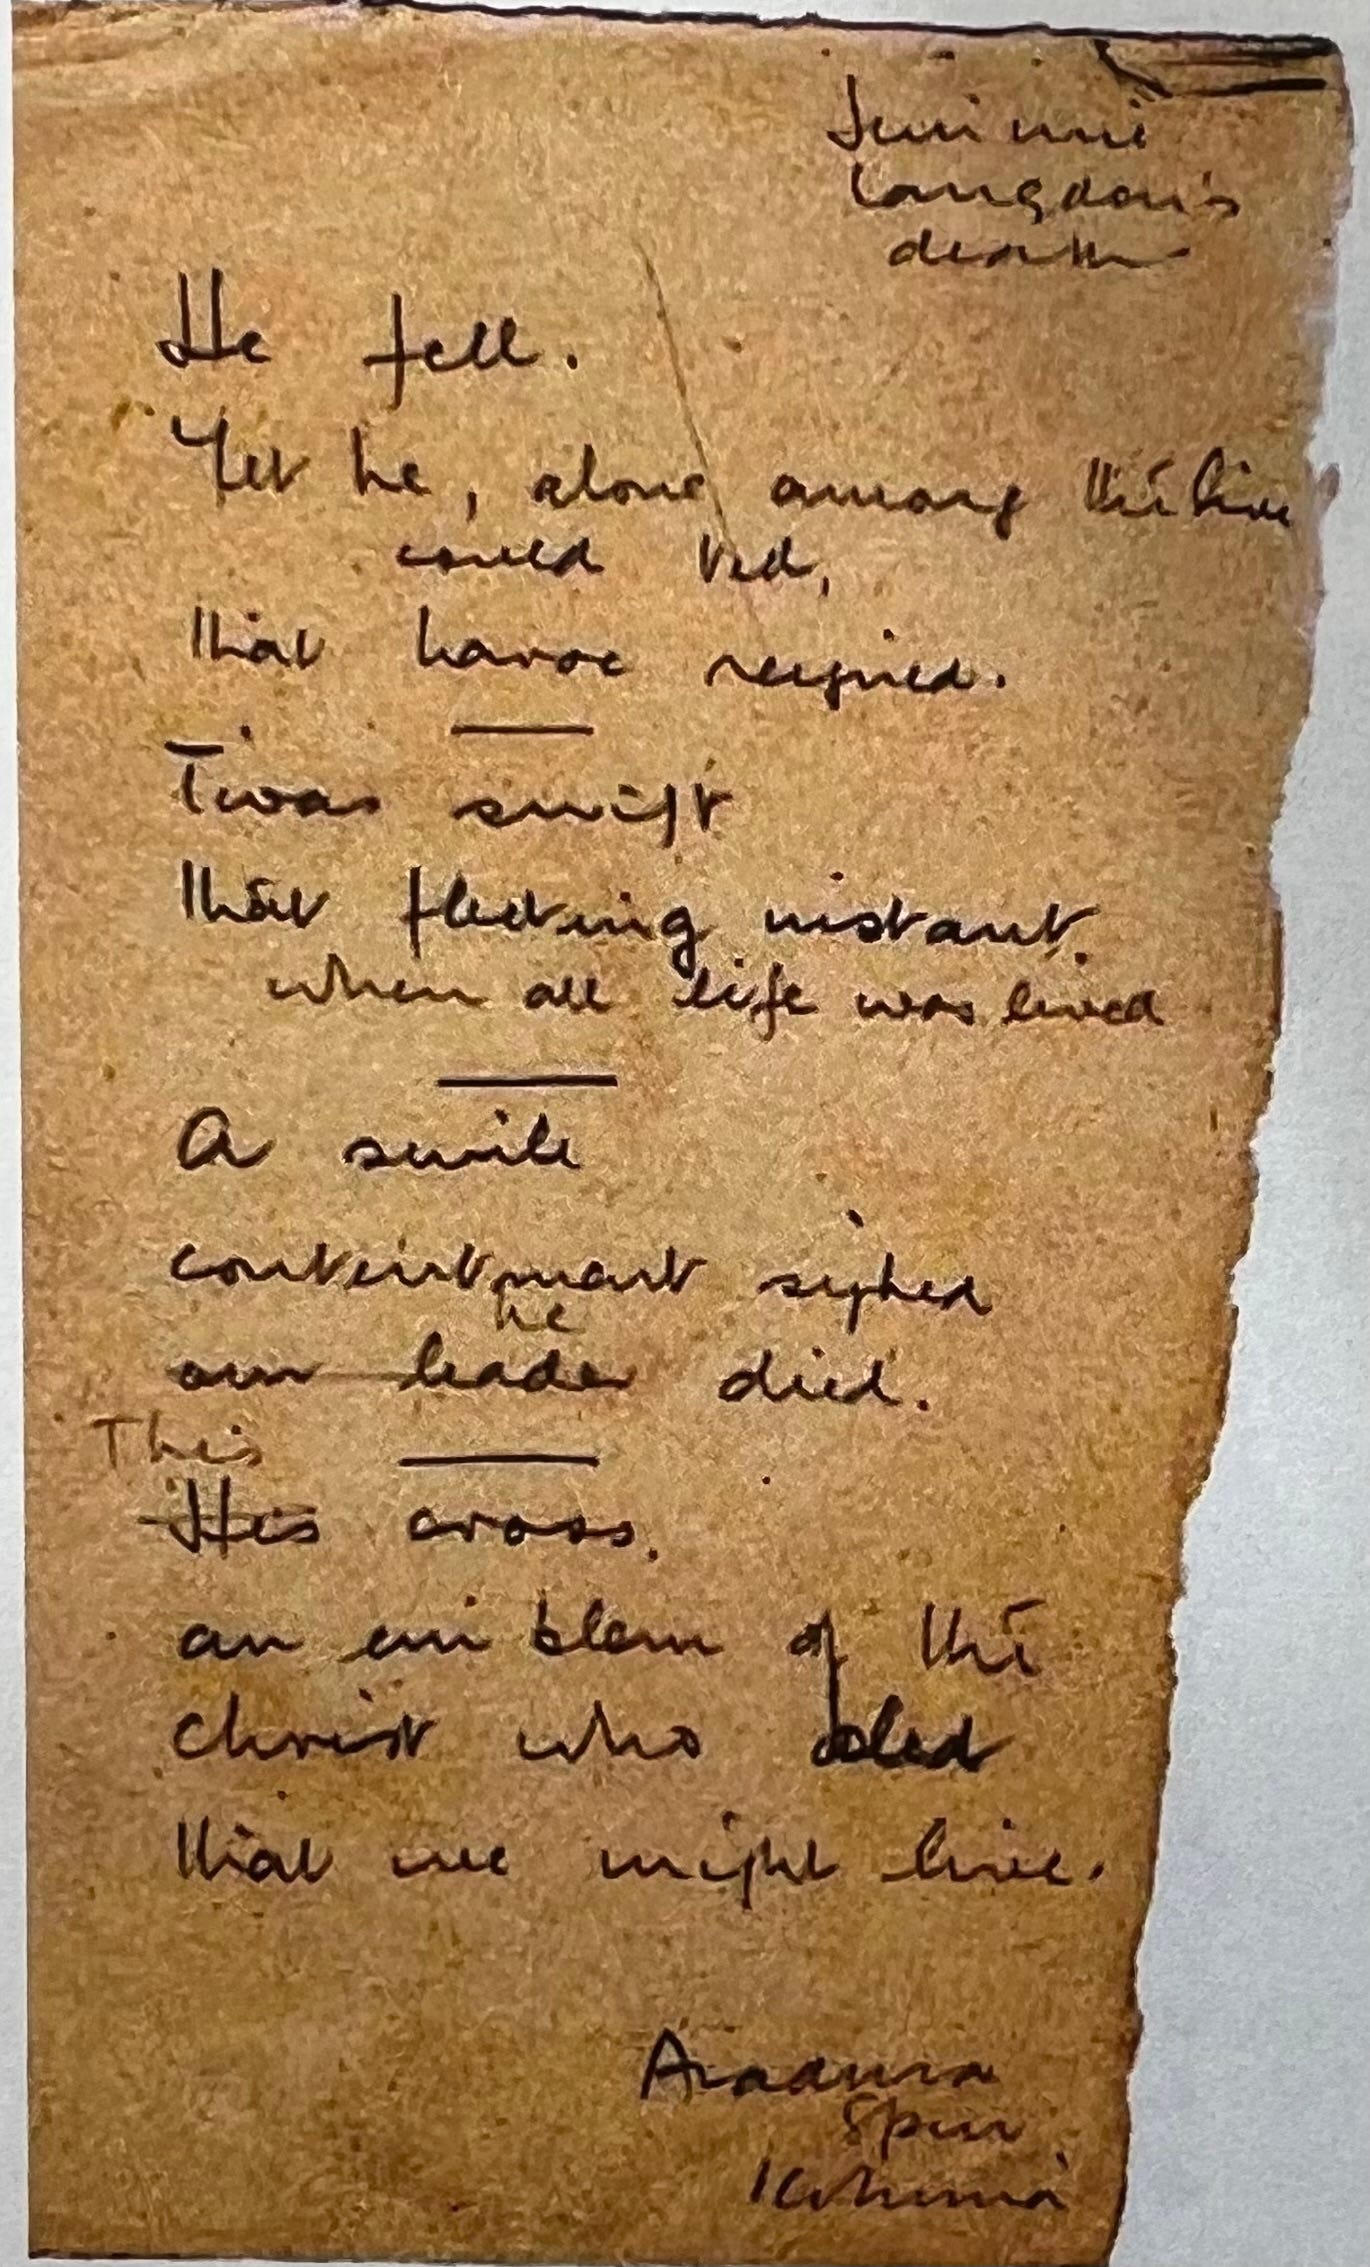 Jimmie
Langdon's
death
He fell.
Yet he, alone among the live
could tell,
that havoc reigned.
Twas swift
that fleeting instant.
when all life was lived
A smile
contentment sighed
he
our leader died.
This
His cross.
an emblem of the
Christ who bled
that we might live.
Aradura
Spur
Kohima